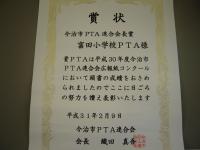 賞状
今治市PTA連合会長賞
富田小学校PTA様
貴PTAは平成30年度今治市
PTA連合会広報紙コンクール
において頭書の成績をおさめ
られましたのでここに日ごろ
の努力を讃え表彰いたします
平成31年2月9日
今治市PTA連合会
会長 織田 真